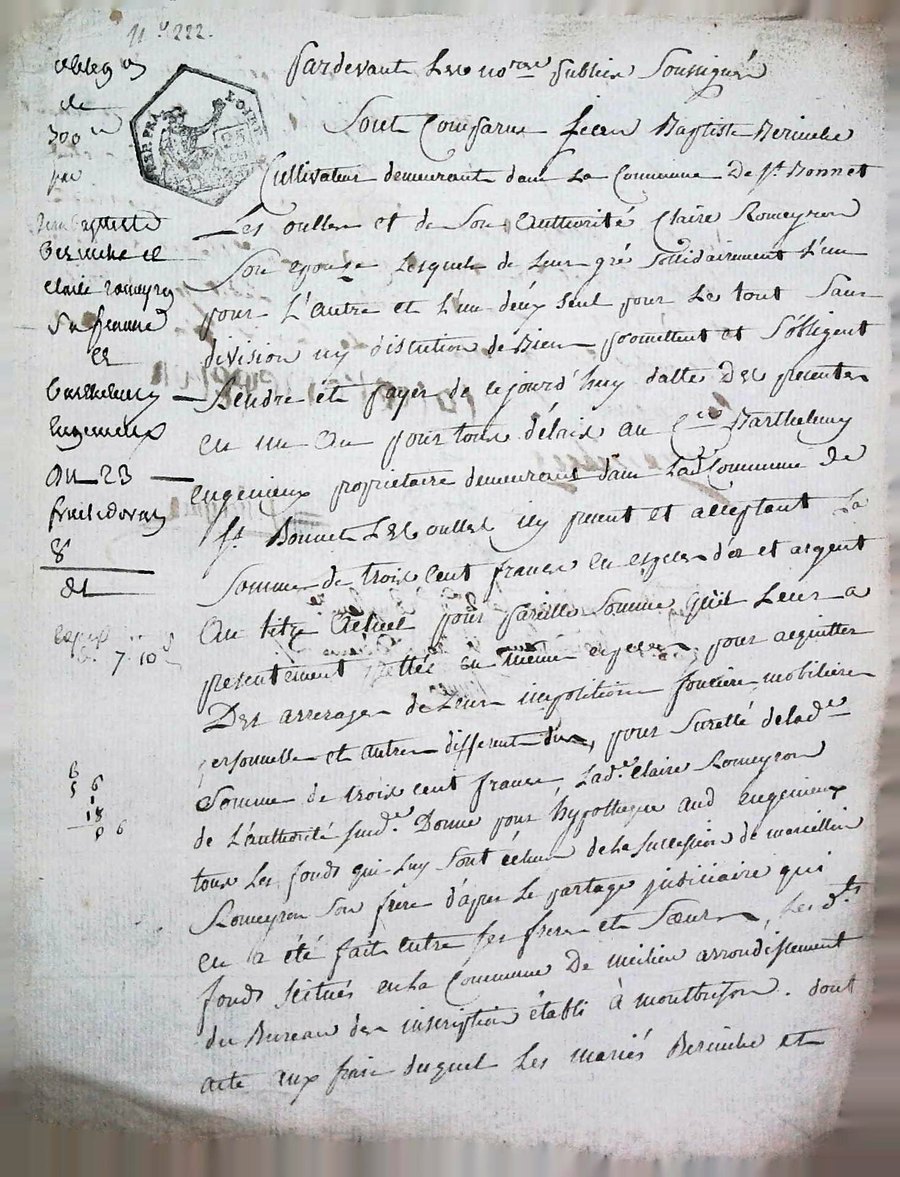 N° 222.
obleg on
de
300 tt
par
Jean baptiste
Beriniche et
Claire romeyron
Sa femme
et
barthelemy
Engenieux
Du 23
fruct
8
Pardevant Les no.res Publics Soussignés
Sont Comparus Jean Baptiste
Cultivateur demeurant dans La Commune De St. Bonnet
Les oulles et de Son Authorité Claire Romeyron
Son epouze Lesquels de Leur gré Sollidairement L'un
pour L'Autre et L'un deux Seul pour Le tout Sans
division ny distution de Biens promettent et S'obligent
Rendre et payer de ce jourd'huy datte Des presentes
en un an pour tous délais au C.en Barthelemy
Engenieux propriétaire demeurant dans Lad. Commune de
St. Bonnet Les oulles icy present et acceptant La
Somme de trois Cent francs en especes d'or et argent
Au titre Actuel pour pareille Somme qu'il Leur a
presentement en même especes, pour acquitter
Des arrerages de Leurs impositions fonciere, mobiliere
personnelle et autres differents dus, pour Suretté de lad.e
Somme de trois cent francs, Lad.e Claire Romeyron
de L'Authorité Susd.e Donne pour hypotheque aud Engenieux
tous Les fonds qui Luy Sont échus de La Succession de marcellin
Romeyron Son frere d'apres Le partage judiciaire qui
en a été fait entre Ses freres et Sœurs, Les d.ts
fonds Scitués en La Commune De meilieu arrondissement
du Bureau des inscriptions établi à montbrison. dont
acte aux frais duquel Les mariés et
7.10